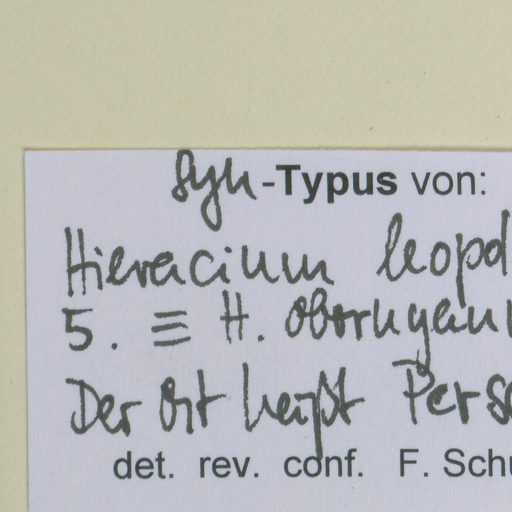 Syn-Typus von:
Hieracium leopd
5. ≡ H.
Der Ort heißt Pers
det. rev. conf. F. Schu